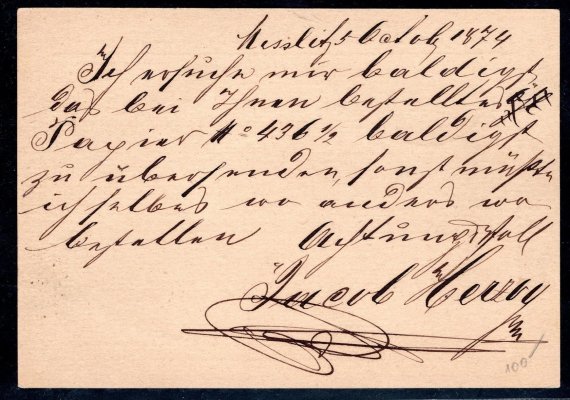 5 Octob 1874
Ich ersuche mir baldigt
das bei Ihnen bestelltes
Papier No 436 1/2 baldigt
zu übersenden, sonst müßte
ich selbes wo anders wo
bestellen Achtungsvoll
Jacob
100